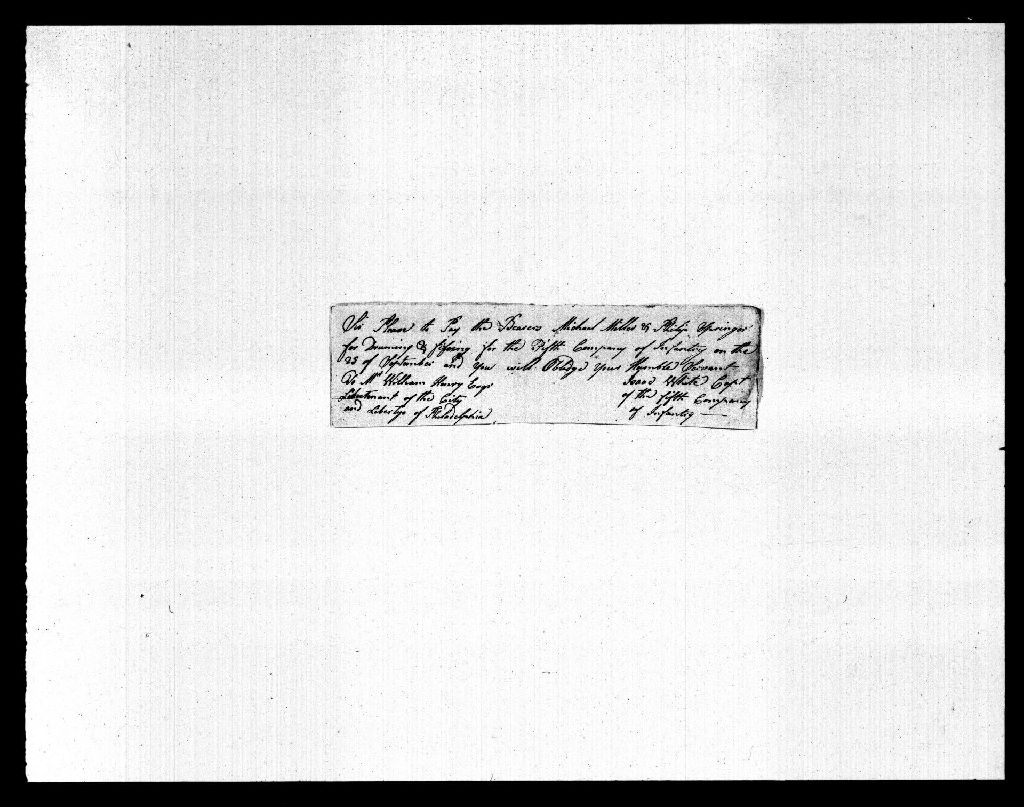 Sir Please to Pay the Bearers Michael Miller & Philip Springer
for Druming & fifeing for the Fifth Company of Infantry on the
25 of September and you will Oblidge your Humble Servant
To Mr William Henry Esqr
Isaac White Capt
Lieutenant of the City
of the fifth Company
and Libertys of Philadelphia
of Infantry